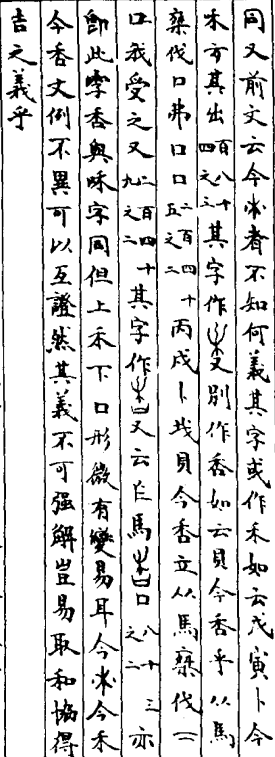 同又前文云今者不知何義其字或作禾如云戊寅卜今
禾方其出百八十四之三其字作又別作香如云貝今香乎从馬
伐口弗口口二百四十五之二丙戌卜貝今香立从馬伐
口我受之又二百四十九之二其字作又云乍馬口八十三之二亦
卽此字香與咊字同但上禾下口形微有變易耳今今禾
今香文例不異可以互證然其義不可强解豈易取和協得
吉之義乎